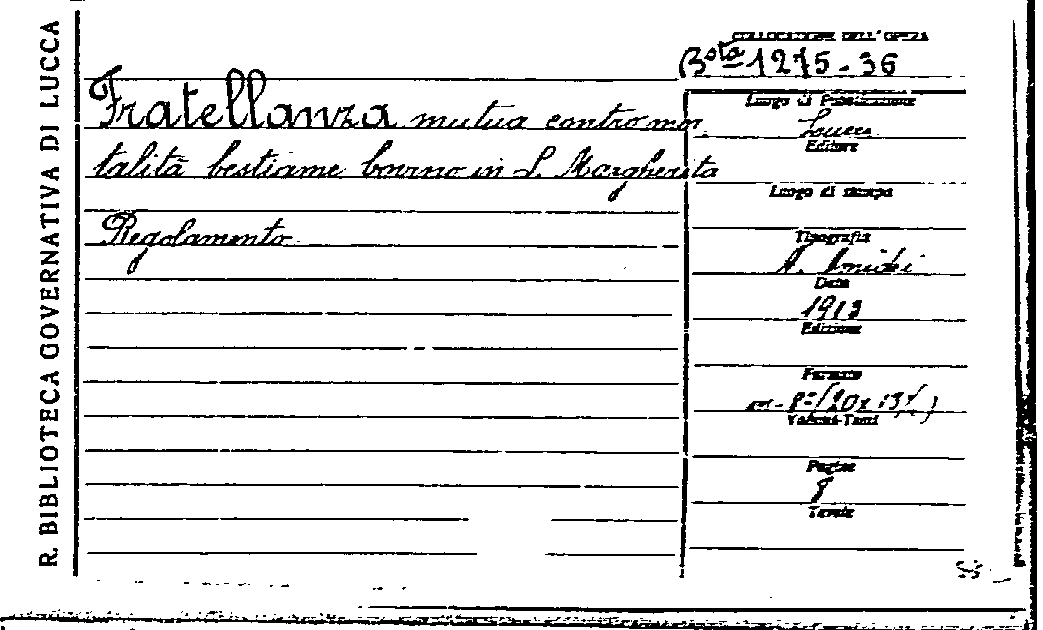 R. BIBLIOTECA GOVERNATIVA DI LUCCA
COLLOCAZIONE DELL'OPERA
Bsta 1275-36
Fratellanza mutua contro mor
talità bestiame bovino in S. Margherita
Regolamento
Luogo di Pubblicazione
Lucca
Editore
Luogo di stampa
Tipografia
A. Amidei
Data
1913
Edizione
Formato
8° (20x13½)
Volumi-Tomi
Pagine
8
Tavole